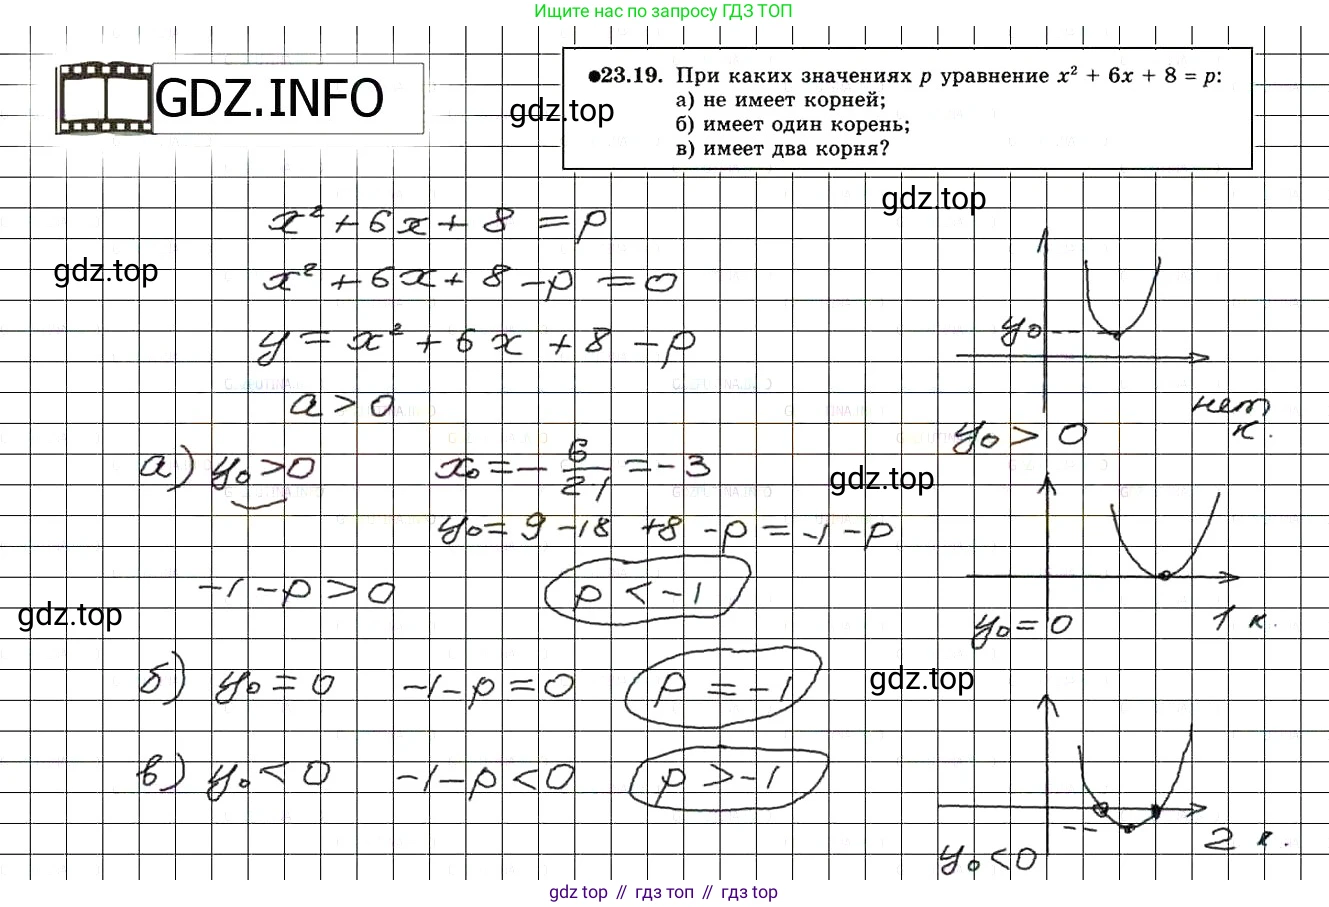 Ищите нас по запросу ГДЗ ТОП
GDZ.INFO
●23.19. При каких значениях p уравнение x² + 6x + 8 = p:
а) не имеет корней;
б) имеет один корень;
в) имеет два корня?
gdz.top
gdz.top
x² + 6x + 8 = p
gdz.top
x² + 6x + 8 - p = 0
y = x² + 6x + 8 - p
y₀
a > 0
нет к.
y₀ > 0
а) y₀ > 0 x₀ = - 6/2·1 = -3
gdz.top
y₀ = 9 - 18 + 8 - p = -1 - p
-1 - p > 0 p < -1
gdz.top
y₀ = 0 1 к.
б) y₀ = 0 -1 - p = 0 p = -1
gdz.top
в) y₀ < 0 -1 - p < 0 p > -1
y₀ < 0 2 к.
gdz top // гдз топ // gdz top